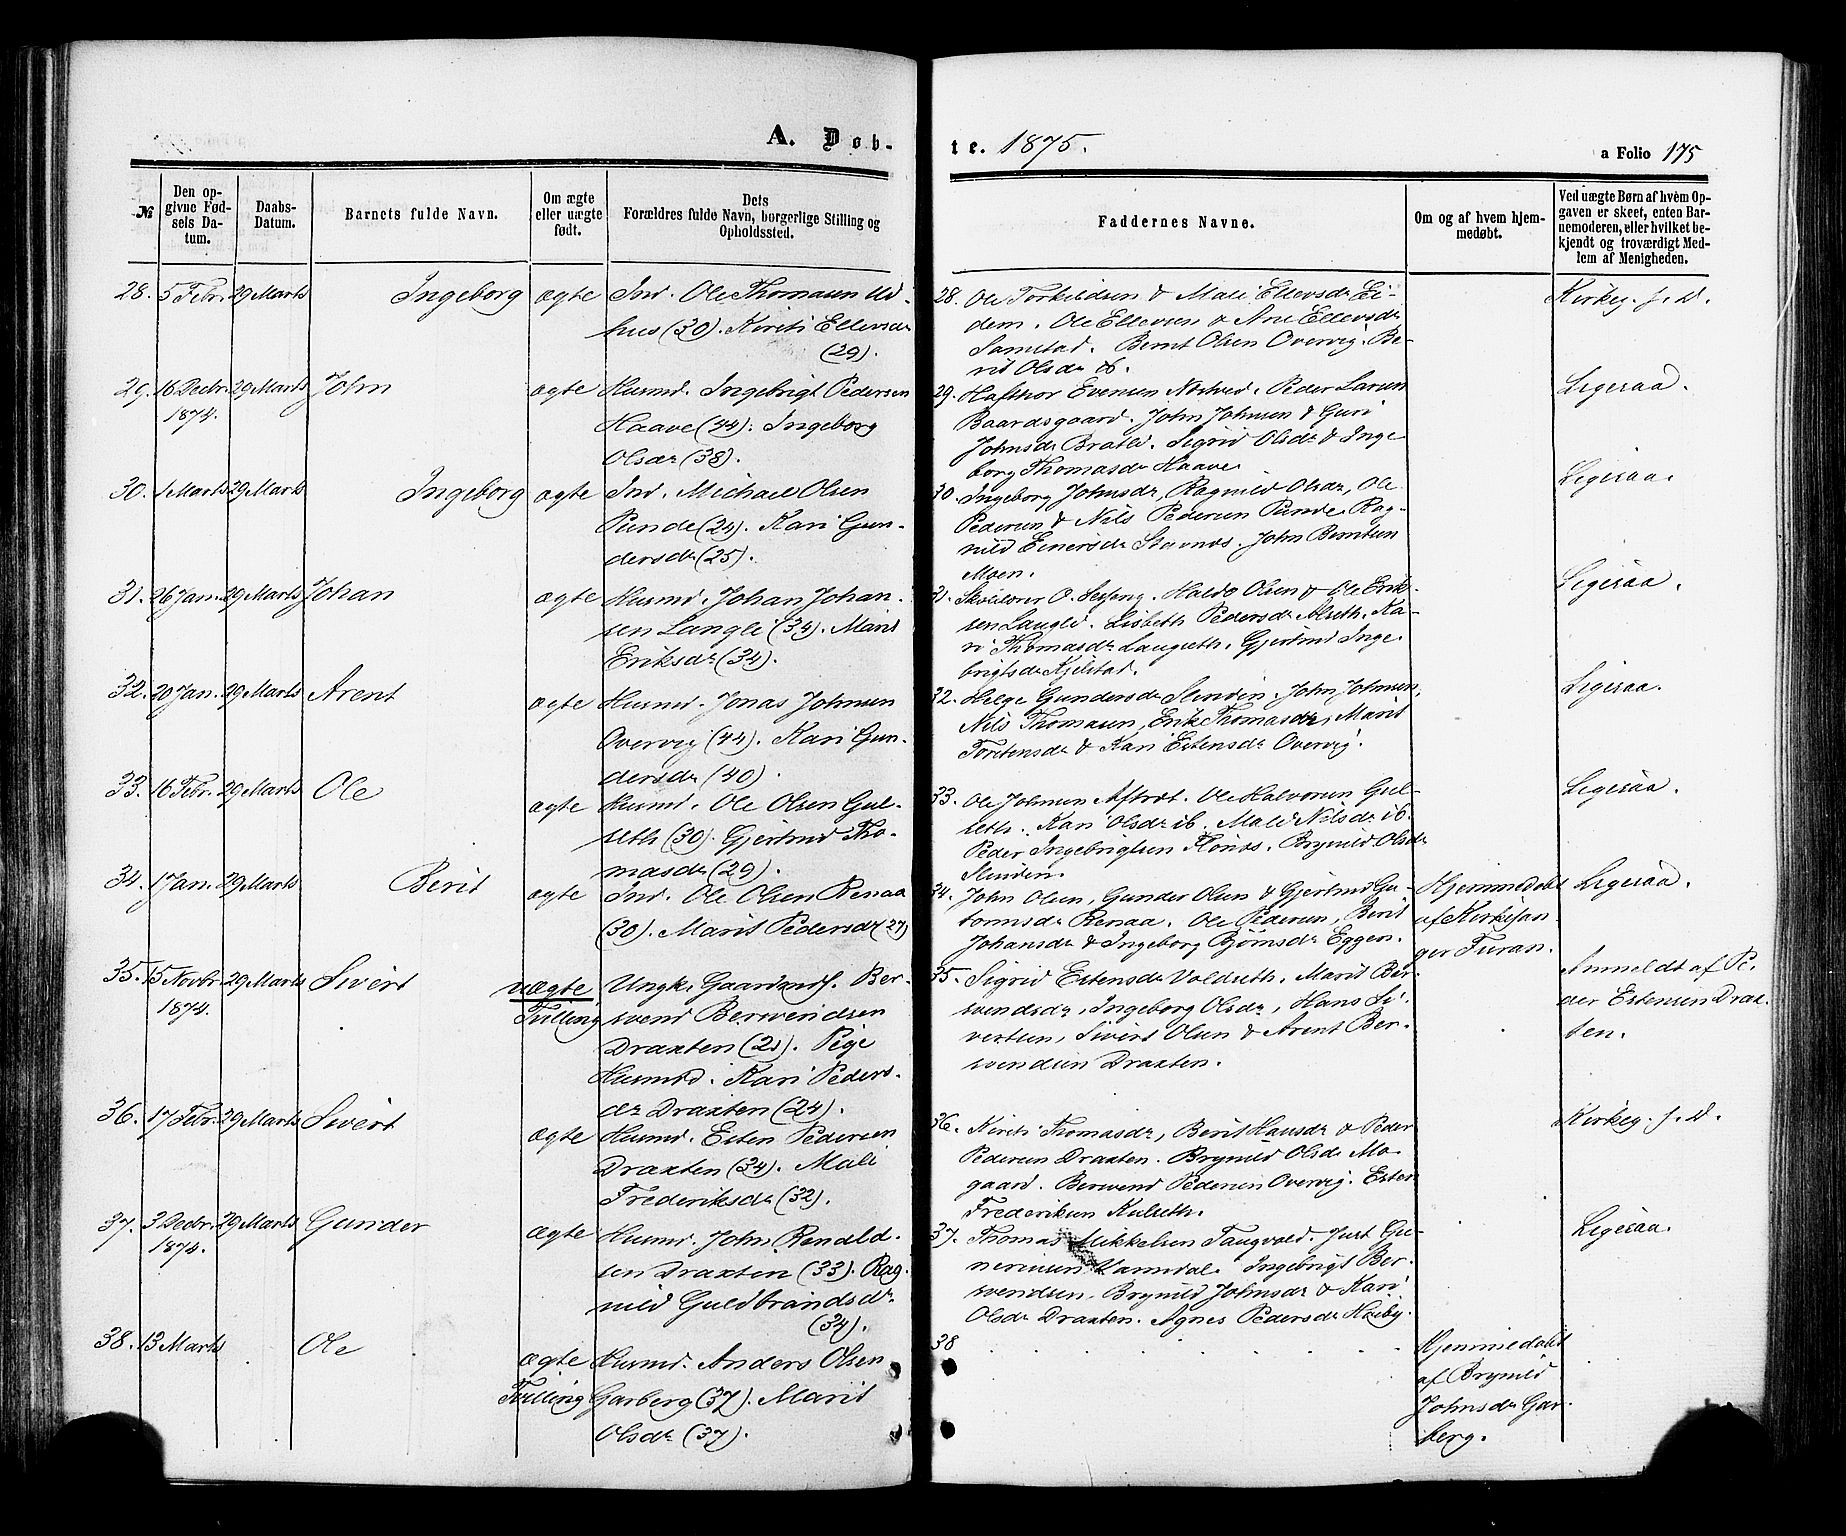 A. Døb-
№
Den opgivne Fødsels Datum.
Daabs-Datum.
Barnets fulde Navn.
Om ægte eller uægte født.
Dets Forældres fulde Navn, borgerlige Stilling og Opholdssted.
28. 5 Febr. 29 Marts Ingeborg ægte Ind. Ole Thomasen Ud-
hus (30). Kirsti Ellevsdr
(29).
29. 16 Decbr. 29 Marts John ægte Husmd. Ingebrigt Pedersen
1874. Haave (44). Ingeborg
Olsdr (38).
30. 1 Marts 29 Marts Ingeborg ægte Ind. Michael Olsen
Punde (24). Kari Gun-
dersdr (25).
31. 26 Jan. 29 Marts Johan ægte Husmd. Johan Johan-
sen Langli (34). Marit
Eriksdr (34).
32. 20 Jan. 29 Marts Arent ægte Husmd. Jonas Johnsen
Overvig (44). Kari Gun-
dersdr (40).
33. 16 Febr. 29 Marts Ole ægte Husmd. Ole Olsen Gul-
seth (30). Gjertrud Tho-
masdr (29).
34. 17 Jan. 29 Marts Berit ægte Ind. Ole Olsen Renaa
(30). Marit Pedersdr (27)
35. 15 Novbr. 29 Marts Sivert uægte Ungk. Gaardmdsf. Ber-
1874. Tvilling svend Bersvendsen
Draxten (21). Pige
Husmd. Kari Peders-
dr Draxten (24).
36. 17 Febr. 29 Marts Sivert ægte Husmd. Esten Pedersen
Draxten (34). Mali
Frederiksdr (32).
37. 3 Decbr. 29 Marts Gunder ægte Husmd. John Renald-
1874. sen Draxten (33). Rag-
nild Guldbrandsdr
(34).
38. 13 Marts Ole ægte Husmd. Anders Olsen
Tvilling Garberg (37). Marit
Olsdr (37).
te. 1875.
a Folio 175
Faddernes Navne.
Om og af hvem hjemmedøbt.
Ved uægte Børn af hvem Opgaven er skeet, enten Barnemoderen, eller hvilket bekjendt og troværdigt Medlem af Menigheden.
28. Ole Torkildsen & Mali Ellevsdr Ei- Kirkeg. f. D.
dem. Ole Ellevsen & Ane Ellevsdr
Samstad. Bernt Olsen Overvig. Be-
rit Olsdr ib.
29. Hafthor Evensen Nostved. Peder Larsen Ligesaa.
Baardsgaard. John Johnsen & Guri
Johnsdr Bratli. Sigrid Olsdr & Inge
borg Thomasdr Haave.
30. Ingeborg Johnsdr, Ragnild Olsdr, Ole Ligesaa.
Pedersen & Nils Pedersen Punde. Rag-
nild Einersdr Stavnes. John Berntsen
Moen.
31. O. Sesseng. Haldo Olsen & Ole Erik- Ligesaa.
sen Langli. Lisbeth Pedersdr Alseth. Ka-
ri Thomasdr Langseth. Gjertrud Inge-
brigtsdr Kjelstad.
32. Helge Gundersdr Slinden. John Johnsen, Ligesaa.
Nils Thomasen, Erik Thomasdr, Marit
Torstensdr & Kari Estensdr Overvig.
33. Ole Johnsen Aftret. Ole Halvorsen Gul- Ligesaa.
seth. Kari Olsdr ib. Mali Nilsdr ib.
Peder Ingebrigtsen Flønes. Brynild Olsdr
Slinden.
34. John Olsen, Gunder Olsen & Gjertrud Gu- Hjemmedøbt Ligesaa.
tormsdr Renaa. Ole Pedersen, Berit af Kirkesan-
Johansdr & Ingeborg Bjørnsdr Eggen. ger Furan.
35. Sigrid Estensdr Voldseth. Marit Ber- Anmeldt af Pe-
svendsdr, Ingeborg Olsdr, Hans Si- der Estensen Drax-
vertsen, Sivert Olsen & Arent Ber- ten.
svendsen Draxten.
36. Kirsti Thomasdr, Berit Hansdr & Peder Kirkeg. f. D.
Pedersen Draxten. Brynild Olsdr Mo-
gaard. Bersvend Pedersen Overvig. Esten
Frederiksen Kulseth.
37. Thomas Mikkelsen Taugvold. Just Gu- Ligesaa.
neriusen Vamdal. Ingebrigt Ber-
svendsen, Brynild Johnsdr & Kari
Olsdr Draxten. Agnes Pedersdr Høiby.
38 Hjemmedøbt
af Brynild
Johnsdr Gar-
berg.